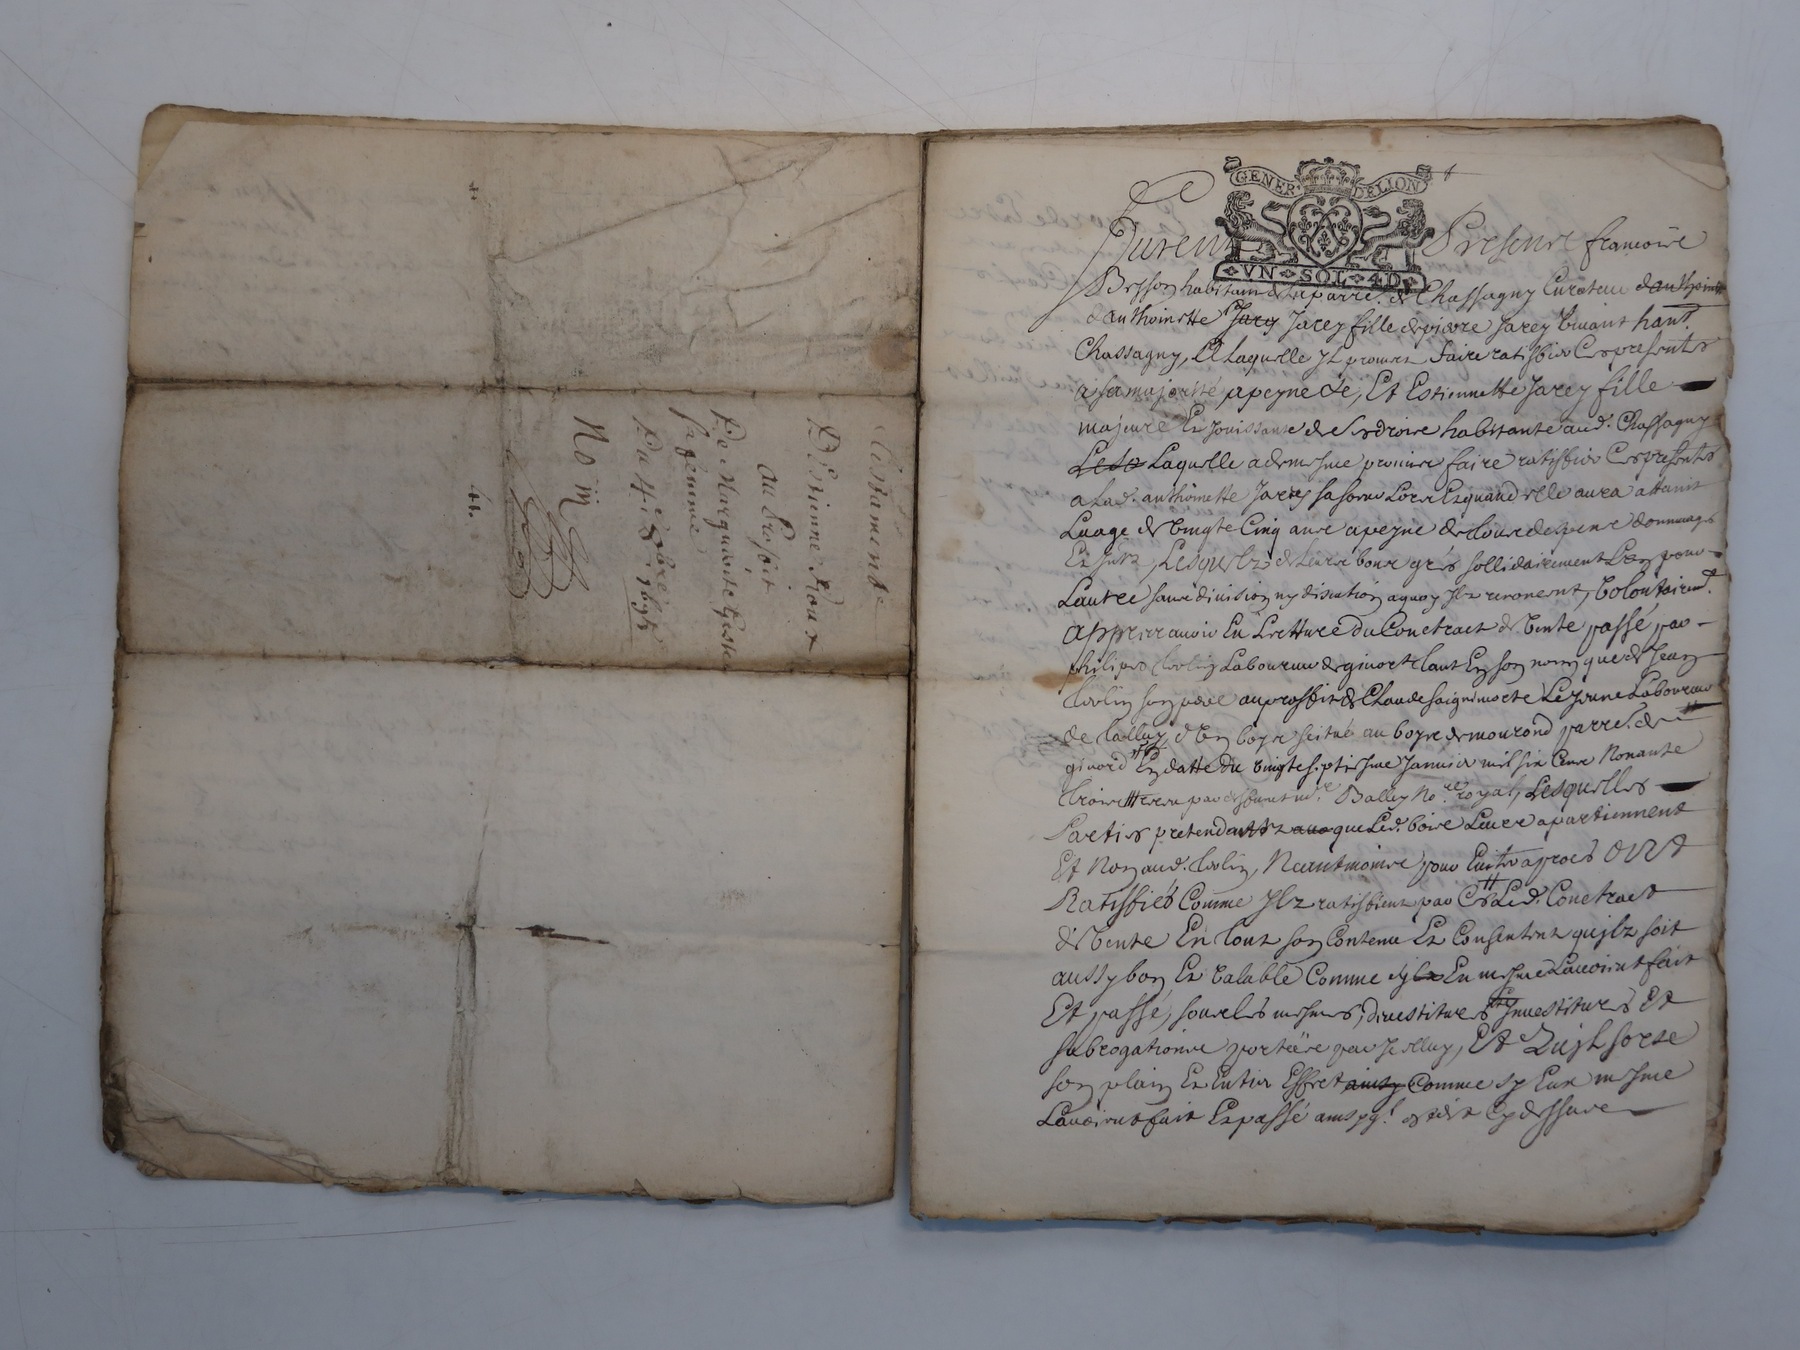 Testament
D'Estienne Roux
au Proffit
De Marguerite
sa femme
Du 4e 8bre 1695
No iij
GENER DELION
VN SOL 4D
Furent Presens francoise
Bresson habitant parre. de Chassagny Curateur danthoinette
danthoinette Jarey Jarey fille de pierre Jarey vivant hant.
Chassagny, Et Laquelle Jl promet faire ratiffier Ces presentes
a sa majorité apeyne de, Et Estiennette Jarey fille
majeure Et Jouissante de ses droits habitante aud. Chassagny
Lesd Laquelle a de mesme promis faire ratiffier Ces presentes
a Lad. anthoinette Jarey sa soeur Lors Et quand elle aura attaint
Laage de vingte Cinq ans apeyne de tous despens dommages
Et Jntz, Lesquelz de Leurs bons grés sollidairement L'ung pour
Lautre sans division ny discution aquoy Jlz renoncent, volontairemt.
appres avoir Eu Lectture du Conctract de vente passé par
philipes Laboureur de givort tant En son nom que de Jean
son pere au proffit de Claude Laboureur
de talluy, d'Un boys scitué au boys de parre. de
givord En datte du vingtseptiesme Janvier mil six Cens Nonante
trois par Balley Nore. royal, Lesquelles
Parties pretendantz que Led. bois Leurs apartiennent
Et Non aud. Neantmoins pour Eviter a proces Ont
Ratiffiés Comme Jlz ratiffient par Ces Led. Conctract
de vente En tout son Contenu Et Consentent quilz soit
aussy bon Et valable Comme sy En mesme Lavoient fait
Et passé, sous les mesmes, devestitures Jnvestitures Et
subrogations portées par Jcelluy, Et Qujl sorte
son plain Et Entier Effect ainsy Comme sy Eux mesme
Lavoient fait Et passé est dit Cy dessus